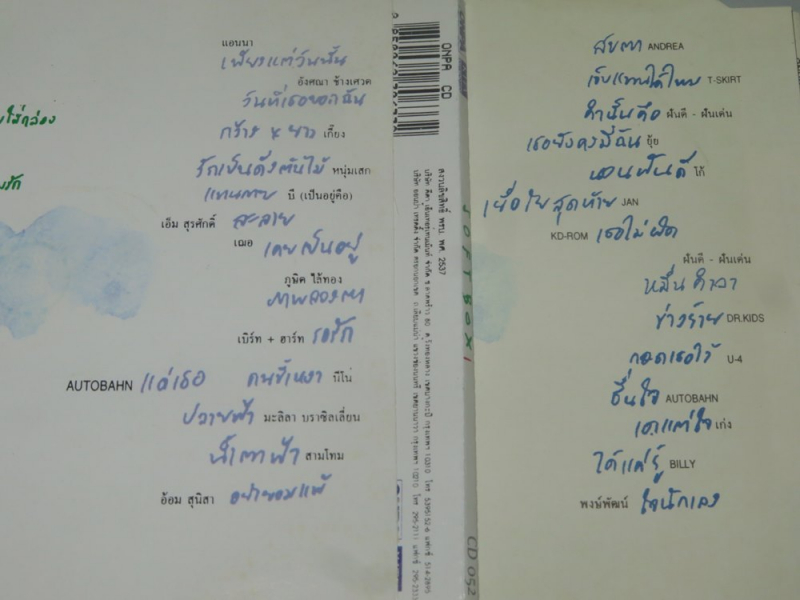 ใส่กล่อง
รัก
แอนนา
เพียงแต่วันนั้น
อังศณา ช้างเศวต
วันที่เธอบอกฉัน
กว้าง x ยาว เกี๊ยง
รักเป็นดั่งต้นไม้ หนุ่มเสก
แทนกาย บี (เป็นอยู่คือ)
เอ็ม สุรศักดิ์ ละลาย
เฌอ เคยเป็นอยู่
ภูพิศ ไล้ทอง
ภาพลวงตา
เบิร์ท + ฮาร์ท รอรัก
AUTOBAHN แด่เธอ คนขี้เหงา นีโน่
ปลายฟ้า มะลิลา บราซิลเลี่ยน
น้ำตาฟ้า สามโทม
อ้อม สุนิสา อย่ายอมแพ้
ONPA CD
สงวนลิขสิทธิ์ พรบ. พศ. 2537
SOFT BOX 1
CD 052
สบตา ANDREA
เจ็บแทนได้ไหม T-SKIRT
คำนั้นคือ ฝันดี - ฝันเด่น
เธอยังคงมีฉัน ยุ้ย
นอนฝันดี โก้
เยื่อใยสุดท้าย JAN
KD-ROM เธอไม่ผิด
ฝันดี - ฝันเด่น
หมื่นคำลา
ช่างร้าย DR.KIDS
กอดเธอไว้ U-4
ชื่นใจ AUTOBAHN
เอาแต่ใจ เก่ง
ได้แค่รู้ BILLY
พงษ์พัฒน์ ใจนักเลง